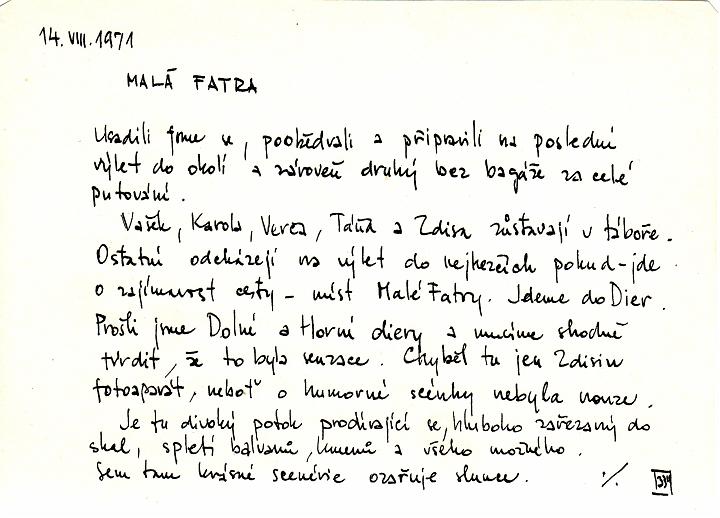 14. VIII. 1971
MALÁ FATRA
Usadili jsme se, poobědvali a připravili na poslední
výlet do okolí a zároveň druhý bez bagáže za celé
putování.
Vašek, Karola, Verča, Táňa a Zdisa zůstavají v táboře.
Ostatní odcházejí na výlet do nejhezčích pokud-jde
o zajímavost cesty - míst Malé Fatry. Jdeme do Dier.
Prošli jsme Dolní a Horní diery a musíme shodně
tvrdit, že to byla senzace. Chyběl tu jen Zdisin
fotoaparát, neboť o humorné scénky nebyla nouze.
Je tu divoký potok prodírající se, hluboko zařezaný do
skal, spletí balvanů, kmenů a všeho možného.
Sem tam krásné scenérie ozařuje slunce. ./.